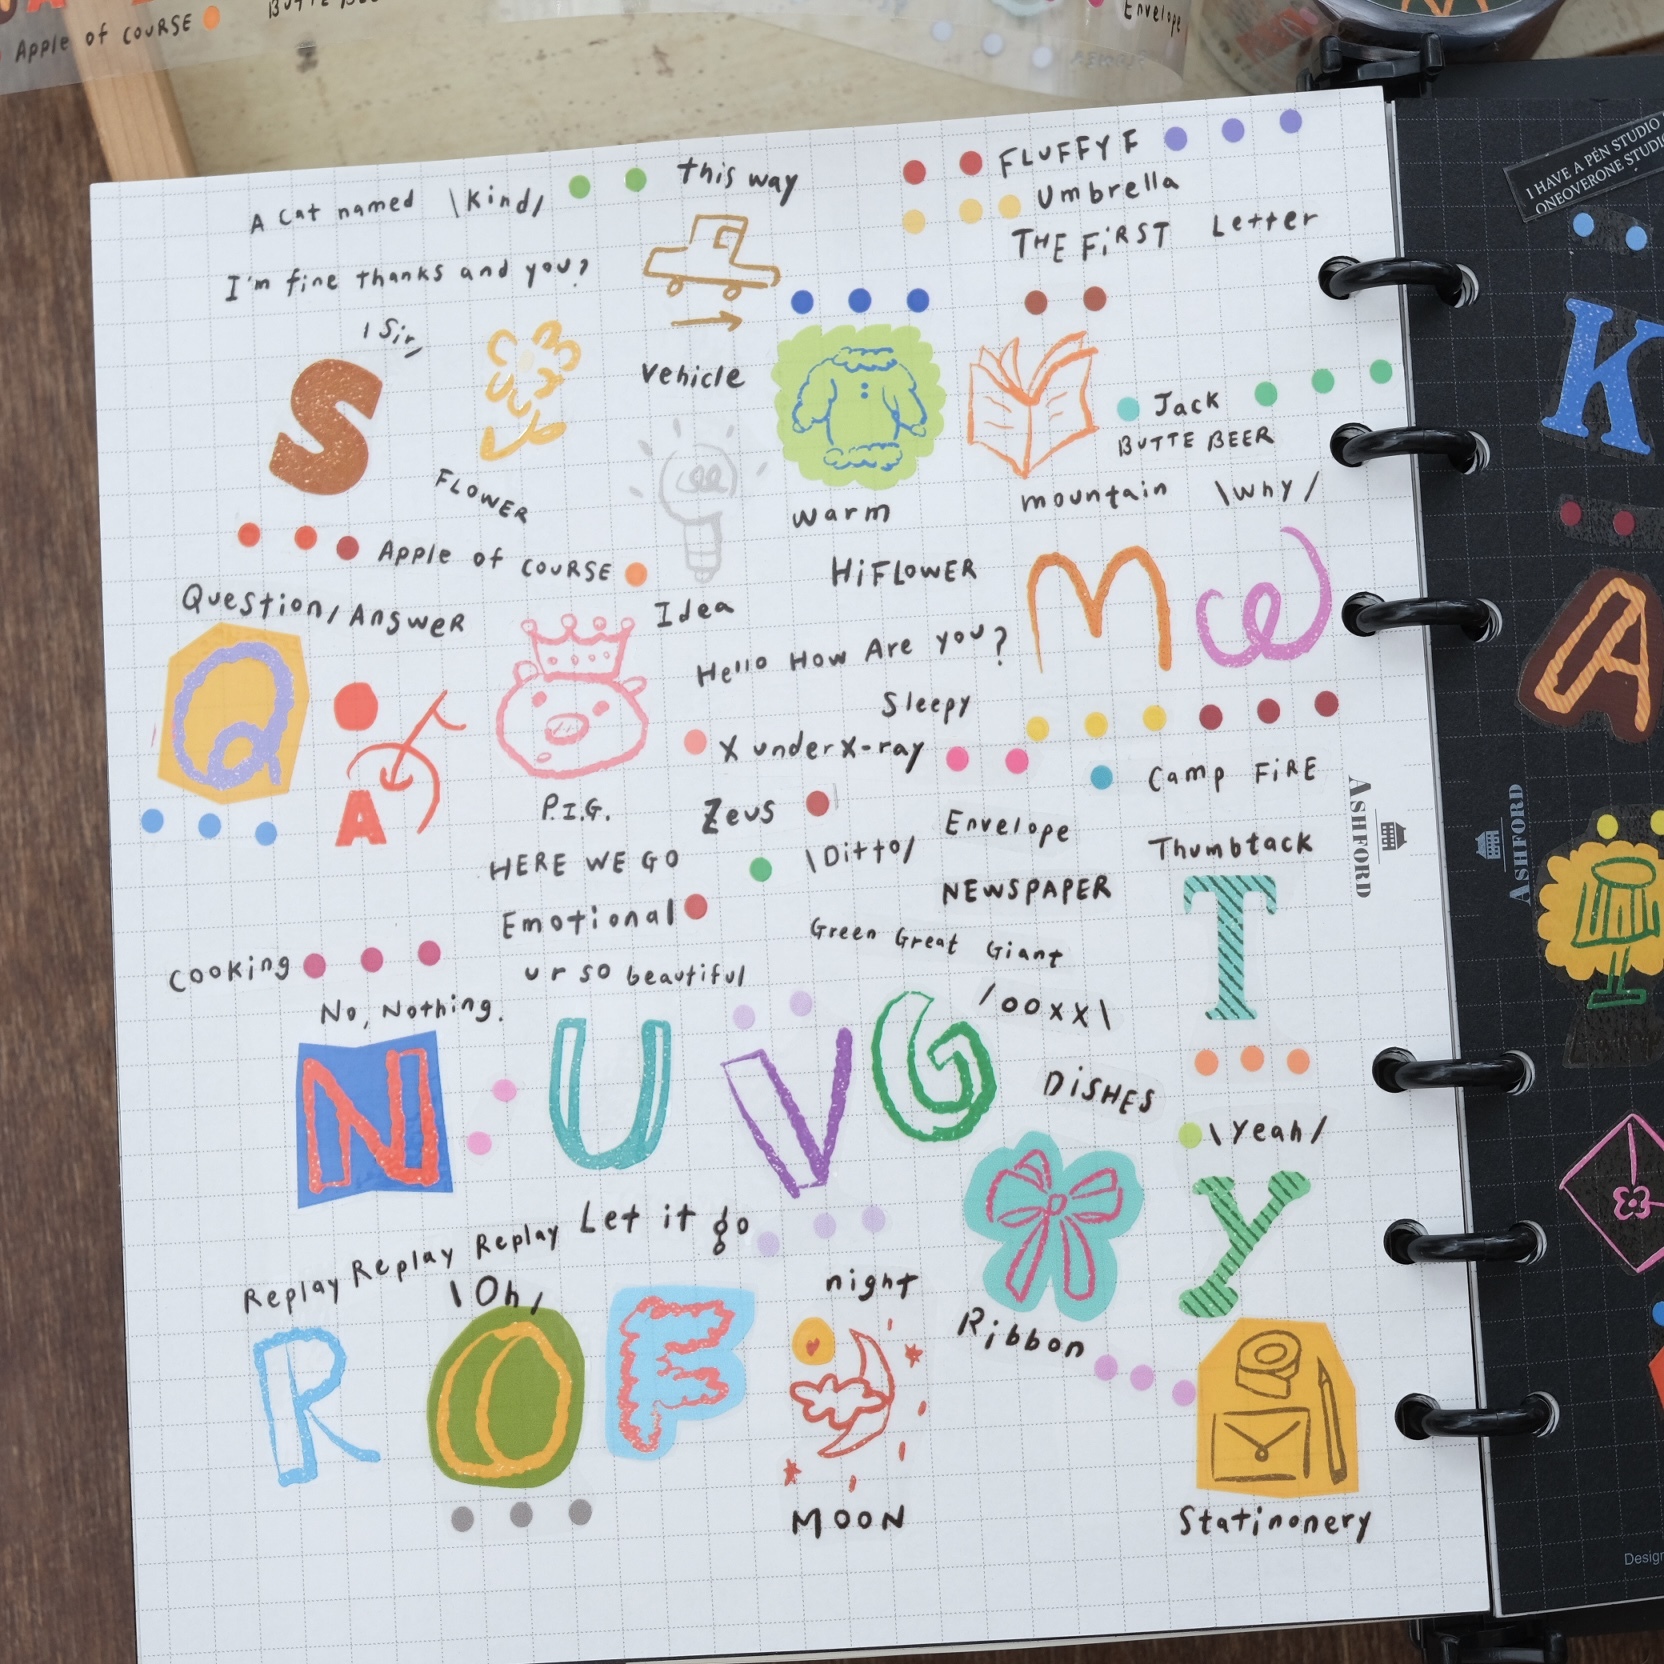 BUTTE BEER
Envelope
Apple of COURSE
I HAVE A PEN STUDIO
ONEOVERONE STUDIO
A Cat named \Kind/
This way
FLUFFY F
Umbrella
THE FIRST Letter
I'm fine thanks and you?
\Sir/
S
FLOWER
Vehicle
warm
Jack
BUTTE BEER
mountain \why/
K
Apple of COURSE
HiFLOWER
M W
Question/Answer
Idea
Hello How Are you?
Q
A
A
Sleepy
X under X-ray
Camp FiRE
P.I.G.
Zeus
Envelope
\Ditto/
Thumbtack
ASHFORD
ASHFORD
HERE WE GO
NEWSPAPER
T
Emotional
Green Great Giant
Cooking
ur so beautiful
No, Nothing.
/ooxx\
N U V G
DiSHES
\Yeah/
y
Replay Replay Replay
Let it go
\Oh/
night
Ribbon
R O F
MOON
Statinonery
Design